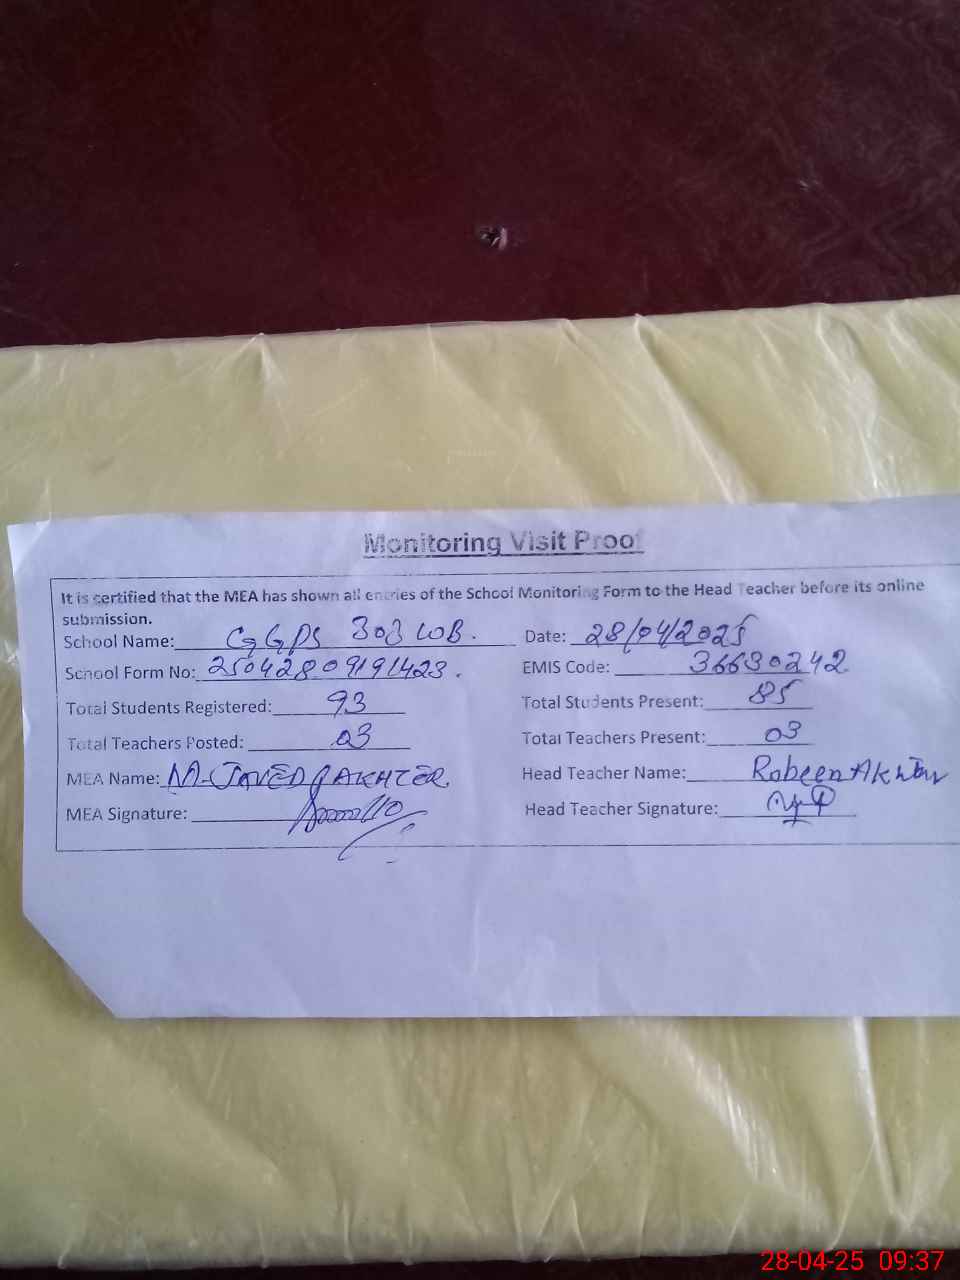 Monitoring Visit Proof
It is certified that the MEA has shown all entries of the School Monitoring Form to the Head Teacher before its online
submission.
School Name: GGPS 303 WB. Date: 28/04/2025
School Form No: 25042809191423. EMIS Code: 36630242
Total Students Registered: 93 Total Students Present: 85
Total Teachers Posted: 03 Total Teachers Present: 03
MEA Name: M-JAVED AKHTER Head Teacher Name: Robeen Akhtar
MEA Signature: Head Teacher Signature:
28-04-25 09:37